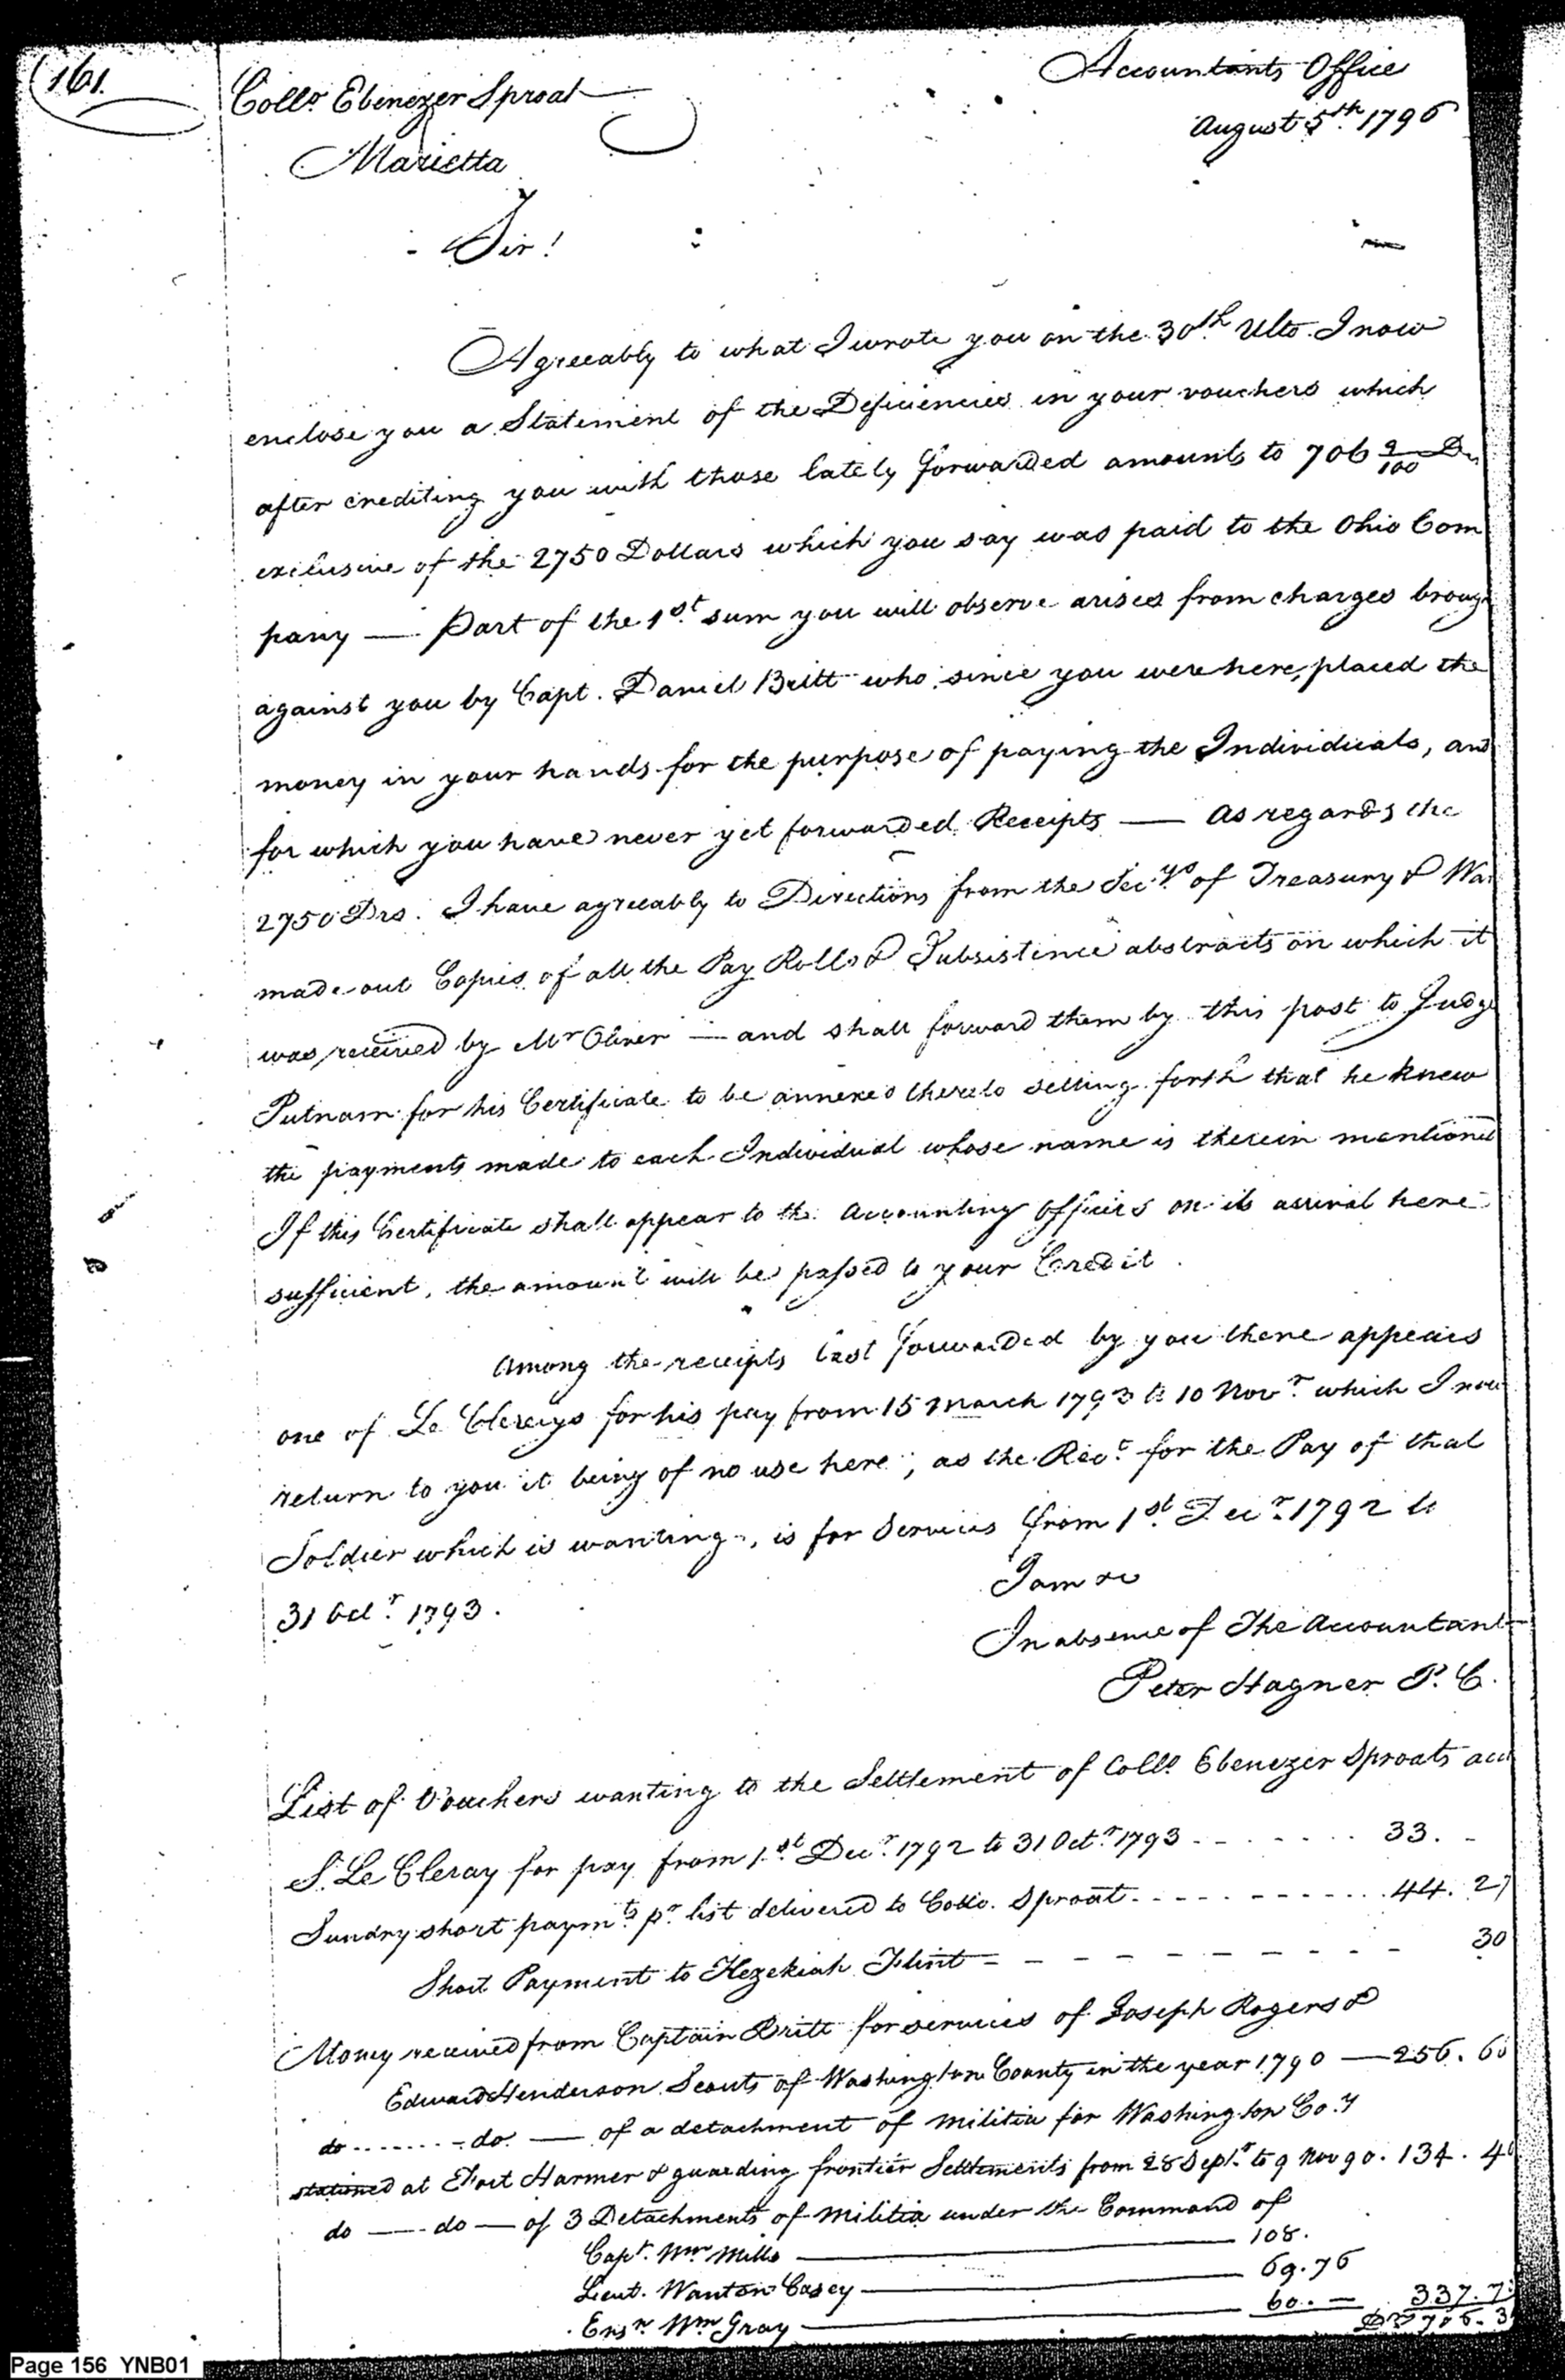 161.
Accountants Office
Collo Ebenezer Sproat
August 5th 1796
Marietta
Sir!
Agreeably to what I wrote you on the 30th Ulto. I now
enclose you a Statement of the Deficiencies in your vouchers which
after crediting you with those lately forwarded amounts to 706 9/100 Drs
exclusive of the 2750 Dollars which you say was paid to the Ohio Com
pany — Part of the 1st sum you will observe arises from charges broug
against you by Capt. Daniel Britt who, since you were here, placed the
money in your hands for the purpose of paying the Individuals, and
for which you have never yet forwarded Receipts — As regards the
2750 Drs. I have agreeably to Directions from the Secys of Treasury & War
made out Copies of all the Pay Rolls & Subsistence abstracts on which it
was received by Mr Oliver — and shall forward them by this post to Judge
Putnam for his Certificate to be annexed thereto setting forth that he knew
the payments made to each Individual whose name is therein mentioned
If this Certificate shall appear to the Accounting officers on its arrival here
sufficient, the amount will be passed to your Credit.
Among the receipts last forwarded by you there appears
one of Le Clerays for his pay from 15 March 1793 to 10 Novr which I now
return to you it being of no use here, as the Rect for the Pay of that
Soldier which is wanting, is for Services from 1st Decr 1792 to
31 Octr 1793.
I am &c
In absence of The Accountant
Peter Hagner P. C.
List of Vouchers wanting to the Settlement of Collo Ebenezer Sproats acc
S. Le Cleray for pay from 1st Decr 1792 to 31 Octr 1793 - - - - - - 33. -
Sundry short paymts pr list delivered to Collo. Sproat - - - - - - 44. 27
Short Payment to Hezekiah Flint - - - - - - - - - 30
Money received from Captain Britt for services of Joseph Rogers &
Edward Henderson Scouts of Washington County in the year 1790 — 256. 60
do - - - - - - do. — of a detachment of militia for Washington Coy
stationed at Fort Harmer & guarding frontier Settlements from 28 Septr to 9 Nov 90. 134. 40
do — do — of 3 Detachments of militia under the Command of
Capt. Wm Mills — 108.
Lieut. Wanton Casey — 69.76
Ensn Wm Gray — 60. — 337.7
Drs 706.3
Page 156 YNB01